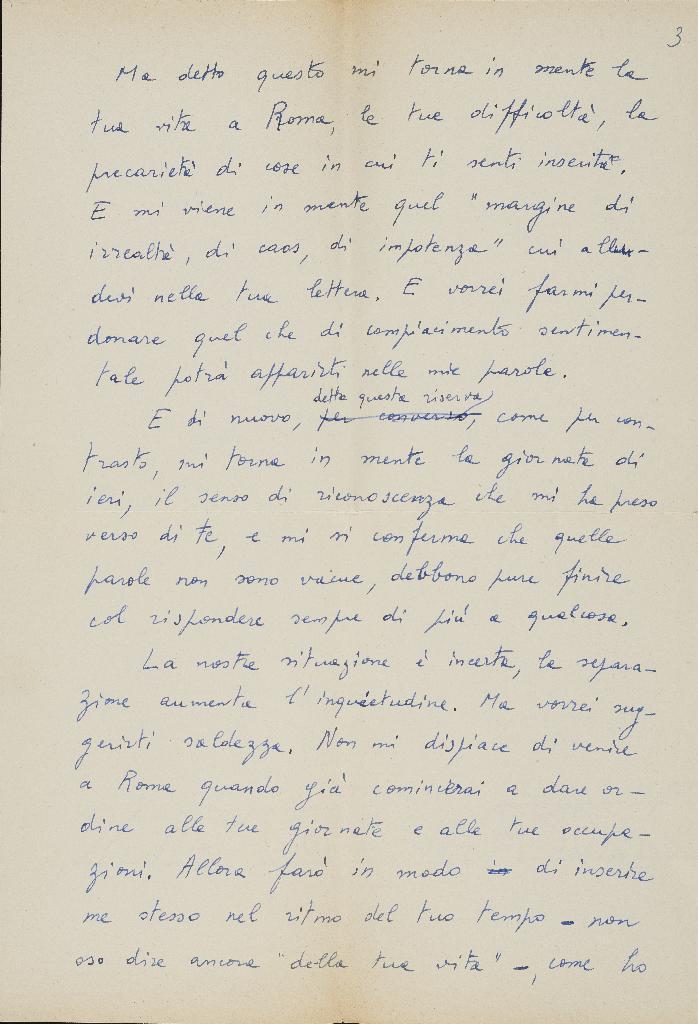 3
Ma detto questo mi torna in mente la
tua vita a Roma, le tue difficoltà, la
precarietà di cose in cui ti senti inserita.
E mi viene in mente quel "margine di
irrealtà, di caos, di impotenza" cui allu-
devi nella tua lettera. E vorrei farmi per-
donare quel che di compiacimento sentimen-
tale potrà apparirti nelle mie parole.
detta questa riserva
E di nuovo, per converso, come per con-
trasto, mi torna in mente la giornata di
ieri, il senso di riconoscenza che mi ha preso
verso di te, e mi si conferma che quelle
parole non sono vacue, debbono pure finire
col rispondere sempre di più a qualcosa.
La nostra situazione è incerta, la separa-
zione aumenta l'inquietudine. Ma vorrei sug-
gerirti saldezza. Non mi dispiace di venire
a Roma quando già comincerai a dare or-
dine alle tue giornate e alle tue occupa-
zioni. Allora farò in modo in di inserire
me stesso nel ritmo del tuo tempo - non
oso dire ancora "della tua vita" -, come ho